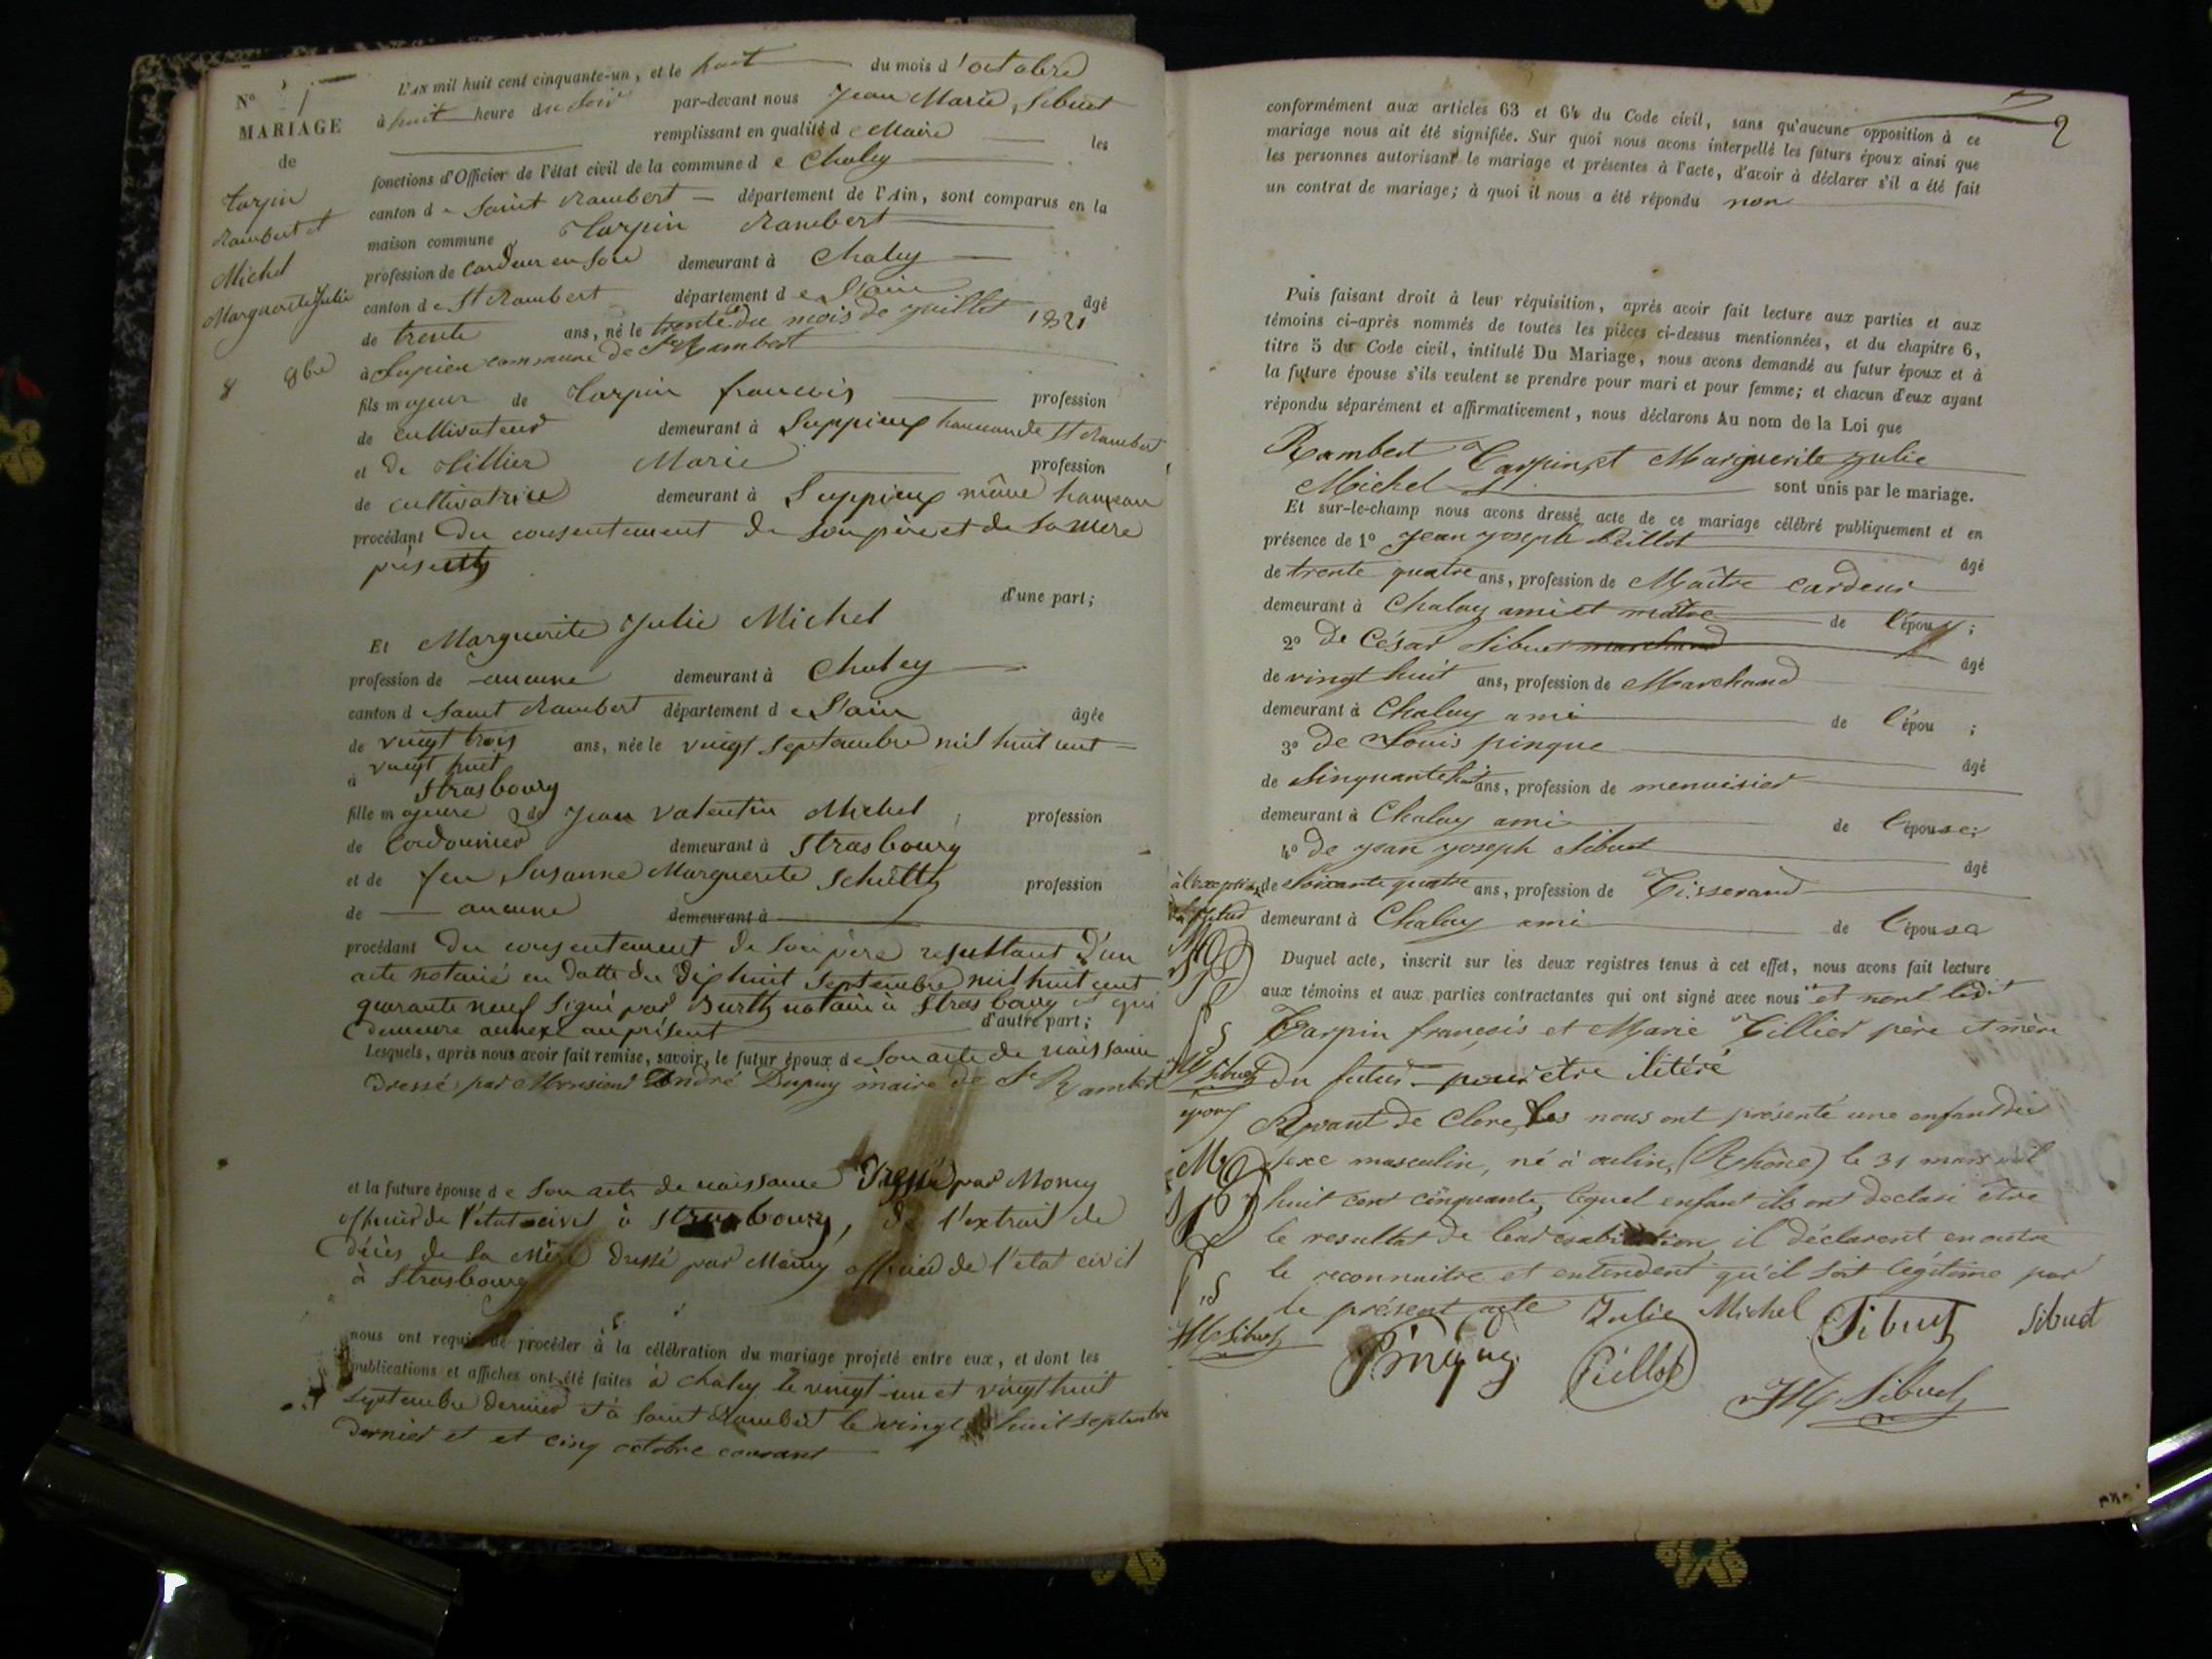 N° 1
MARIAGE
de
Tarpin
Rambert et
Michel
Marguerite Julie
8 8bre
L'AN mil huit cent cinquante-un, et le huit du mois d'octobre
à huit heure du soir par-devant nous Jean Marie Sibuet
remplissant en qualité de Maire les
fonctions d'Officier de l'état civil de la commune de Chaley
canton de Saint Rambert département de l'Ain, sont comparus en la
maison commune Tarpin Rambert
profession de Cardeur en Soie demeurant à Chaley
canton de St Rambert département de l'ain âgé
de trente ans, né le trente du mois de juillet 1821
à commune de St Rambert
fils majeur de Tarpin francois profession
de cultivateur demeurant à Suppieux hameau de St Rambert
et de Tillier Marie profession
de cultivatrice demeurant à Suppieux même hameau
procédant du consentement de son père et de sa mere
présents
d'une part;
Et Marguerite Julie Michel
profession de aucune demeurant à Chaley
canton de Saint Rambert département de l'ain âgée
de vingt trois ans, née le vingt Septembre mil huit cent
vingt huit
à Strasbourg
fille majeure de Jean Valentin Michel profession
de Cordonnier demeurant à Strasbourg
et de feu Susanne Marguerite Schültz profession
de aucune demeurant à
procédant du consentement de son père resultant d'un
acte notarié en datte du dix huit Septembre mil huit cent
quarante neuf Signé par Burtz notaire à Strasbourg et qui
demeure annexé au présent d'autre part;
Lesquels, après nous avoir fait remise, savoir, le futur époux de Son acte de naissance
dressé par Monsieur André Dupuy maire de St Rambert
et la future épouse de Son acte de naissance dressé par Momy
officier de l'état civil à Strasbourg, de l'extrait de
décès de sa Mère dressé par Momy officier de l'etat civil
à Strasbourg
nous ont requis de procéder à la célébration du mariage projeté entre eux, et dont les
publications et affiches ont été faites à Chaley le vingt-un et vingt huit
Septembre dernier et à Saint Rambert le vingt huit septembre
dernier et et cinq octobre courant
2
conformément aux articles 63 et 64 du Code civil, sans qu'aucune opposition à ce
mariage nous ait été signifiée. Sur quoi nous avons interpellé les futurs époux ainsi que
les personnes autorisant le mariage et présentes à l'acte, d'avoir à déclarer s'il a été fait
un contrat de mariage; à quoi il nous a été répondu non
Puis faisant droit à leur réquisition, après avoir fait lecture aux parties et aux
témoins ci-après nommés de toutes les pièces ci-dessus mentionnées, et du chapitre 6,
titre 5 du Code civil, intitulé Du Mariage, nous avons demandé au futur époux et à
la future épouse s'ils veulent se prendre pour mari et pour femme; et chacun d'eux ayant
répondu séparément et affirmativement, nous déclarons Au nom de la Loi que
Rambert Tarpin et Marguerite Julie
Michel sont unis par le mariage.
Et sur-le-champ nous avons dressé acte de ce mariage célébré publiquement et en
présence de 1° Jean Joseph Peillot âgé
de trente quatre ans, profession de Maître Cardeur
demeurant à Chaley ami et maître de l'époux;
2° de César Sibuet marchand âgé
de vingt huit ans, profession de Marchand
demeurant à Chaley ami de l'épou ;
3° de Louis pinque âgé
de Sinquante ans, profession de menuisier
demeurant à Chaley ami de l'épouse;
4° de Jean Joseph Sibuet âgé
de Soixante quatre ans, profession de Tisserand
demeurant à Chaley ami de l'épouse
Duquel acte, inscrit sur les deux registres tenus à cet effet, nous avons fait lecture
aux témoins et aux parties contractantes qui ont signé avec nous et nont ledit
Tarpin françois et Marie Tillier père et mère
du futur pour être ilitéré
Avant de Clore, les nous ont présenté une enfant du
sexe masculin, né à oulin, (Rhône) le 31 mars mil
huit cent cinquante, lequel enfant ils ont declaré être
le resultat de leur il déclarent en outre
le reconnaitre et entendent qu'il soit légitime par
le présent acte Julie Michel Sibuet Sibuet
Pinque Peillot
JM Sibuet
à l'exception
du futur
JM Sibuet
époux
JM Sibuet